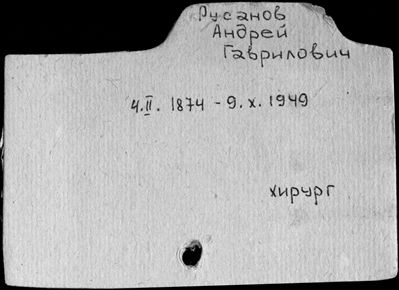 Русанов
Андрей
Гаврилович
4.II. 1874 - 9.X.1949
хирург